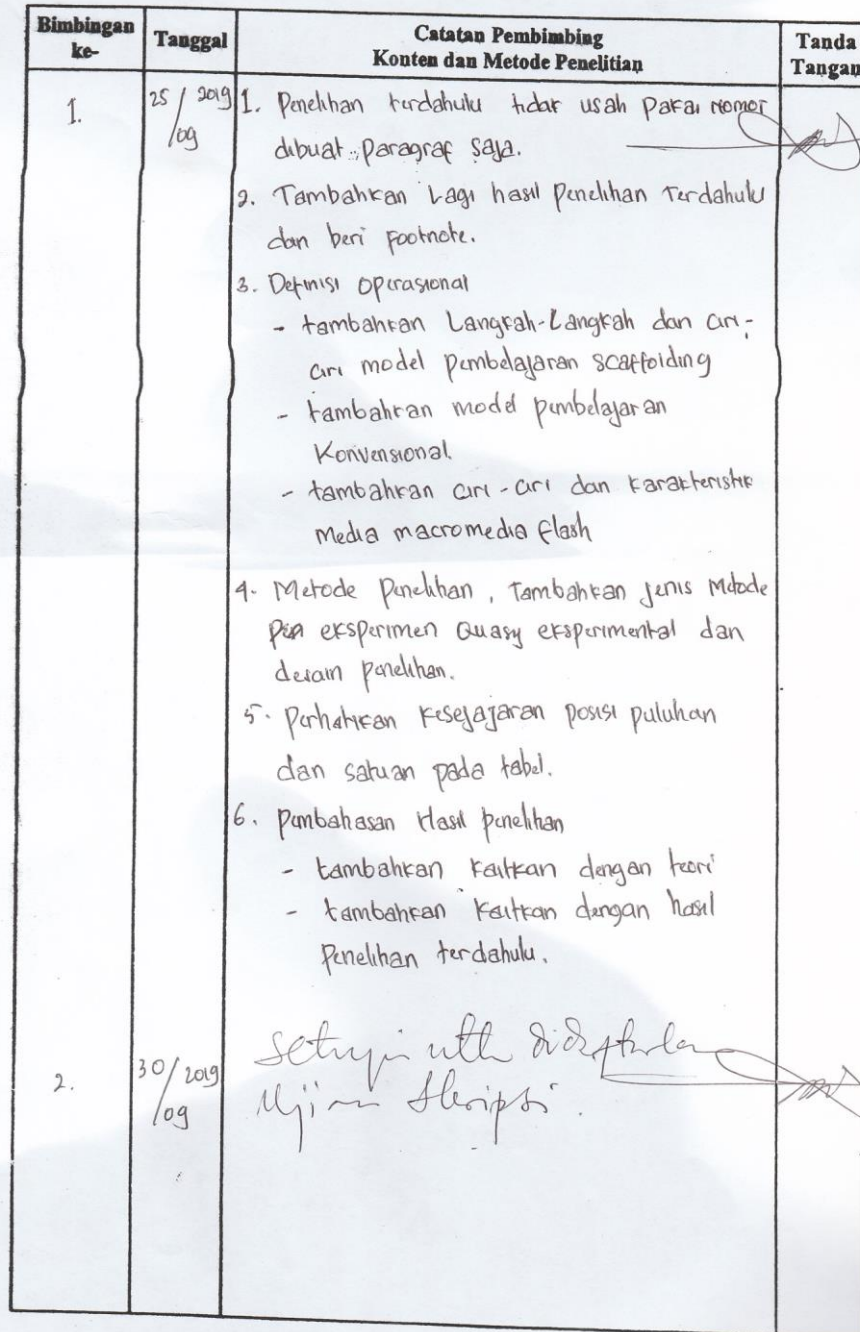 Bimbingan ke-
Tanggal
Catatan Pembimbing
Konten dan Metode Penelitian
Tanda Tangan
1.
25/09 2019
1. Penelitian terdahulu tidak usah pakai nomor
dibuat paragraf saja.
2. Tambahkan Lagi hasil penelitian Terdahulu
dan beri Footnote.
3. Definisi Operasional
- tambahkan Langkah-Langkah dan ciri-
ciri model pembelajaran scaffolding
- tambahkan model pembelajaran
Konvensional.
- tambahkan ciri-ciri dan karakteristik
Media macromedia flash
4. Metode Penelitian, Tambahkan jenis Metode
eksperimen Quasy eksperimental dan
desain penelitian.
5. Perhatikan kesejajaran posisi puluhan
dan satuan pada tabel.
6. Pembahasan Hasil penelitian
- tambahkan kaitkan dengan teori
- tambahkan kaitkan dengan hasil
Penelitian terdahulu.
2.
30/09 2019
Setujui utk didaftarkan
Ujian Skripsi.